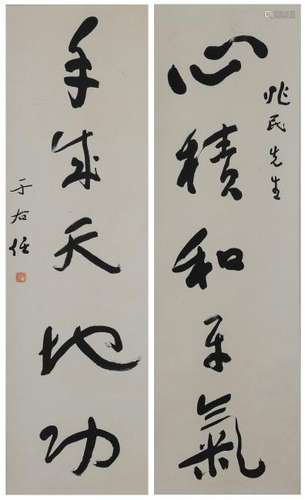 兆民先生
心積和平氣
手成天地功
于右任